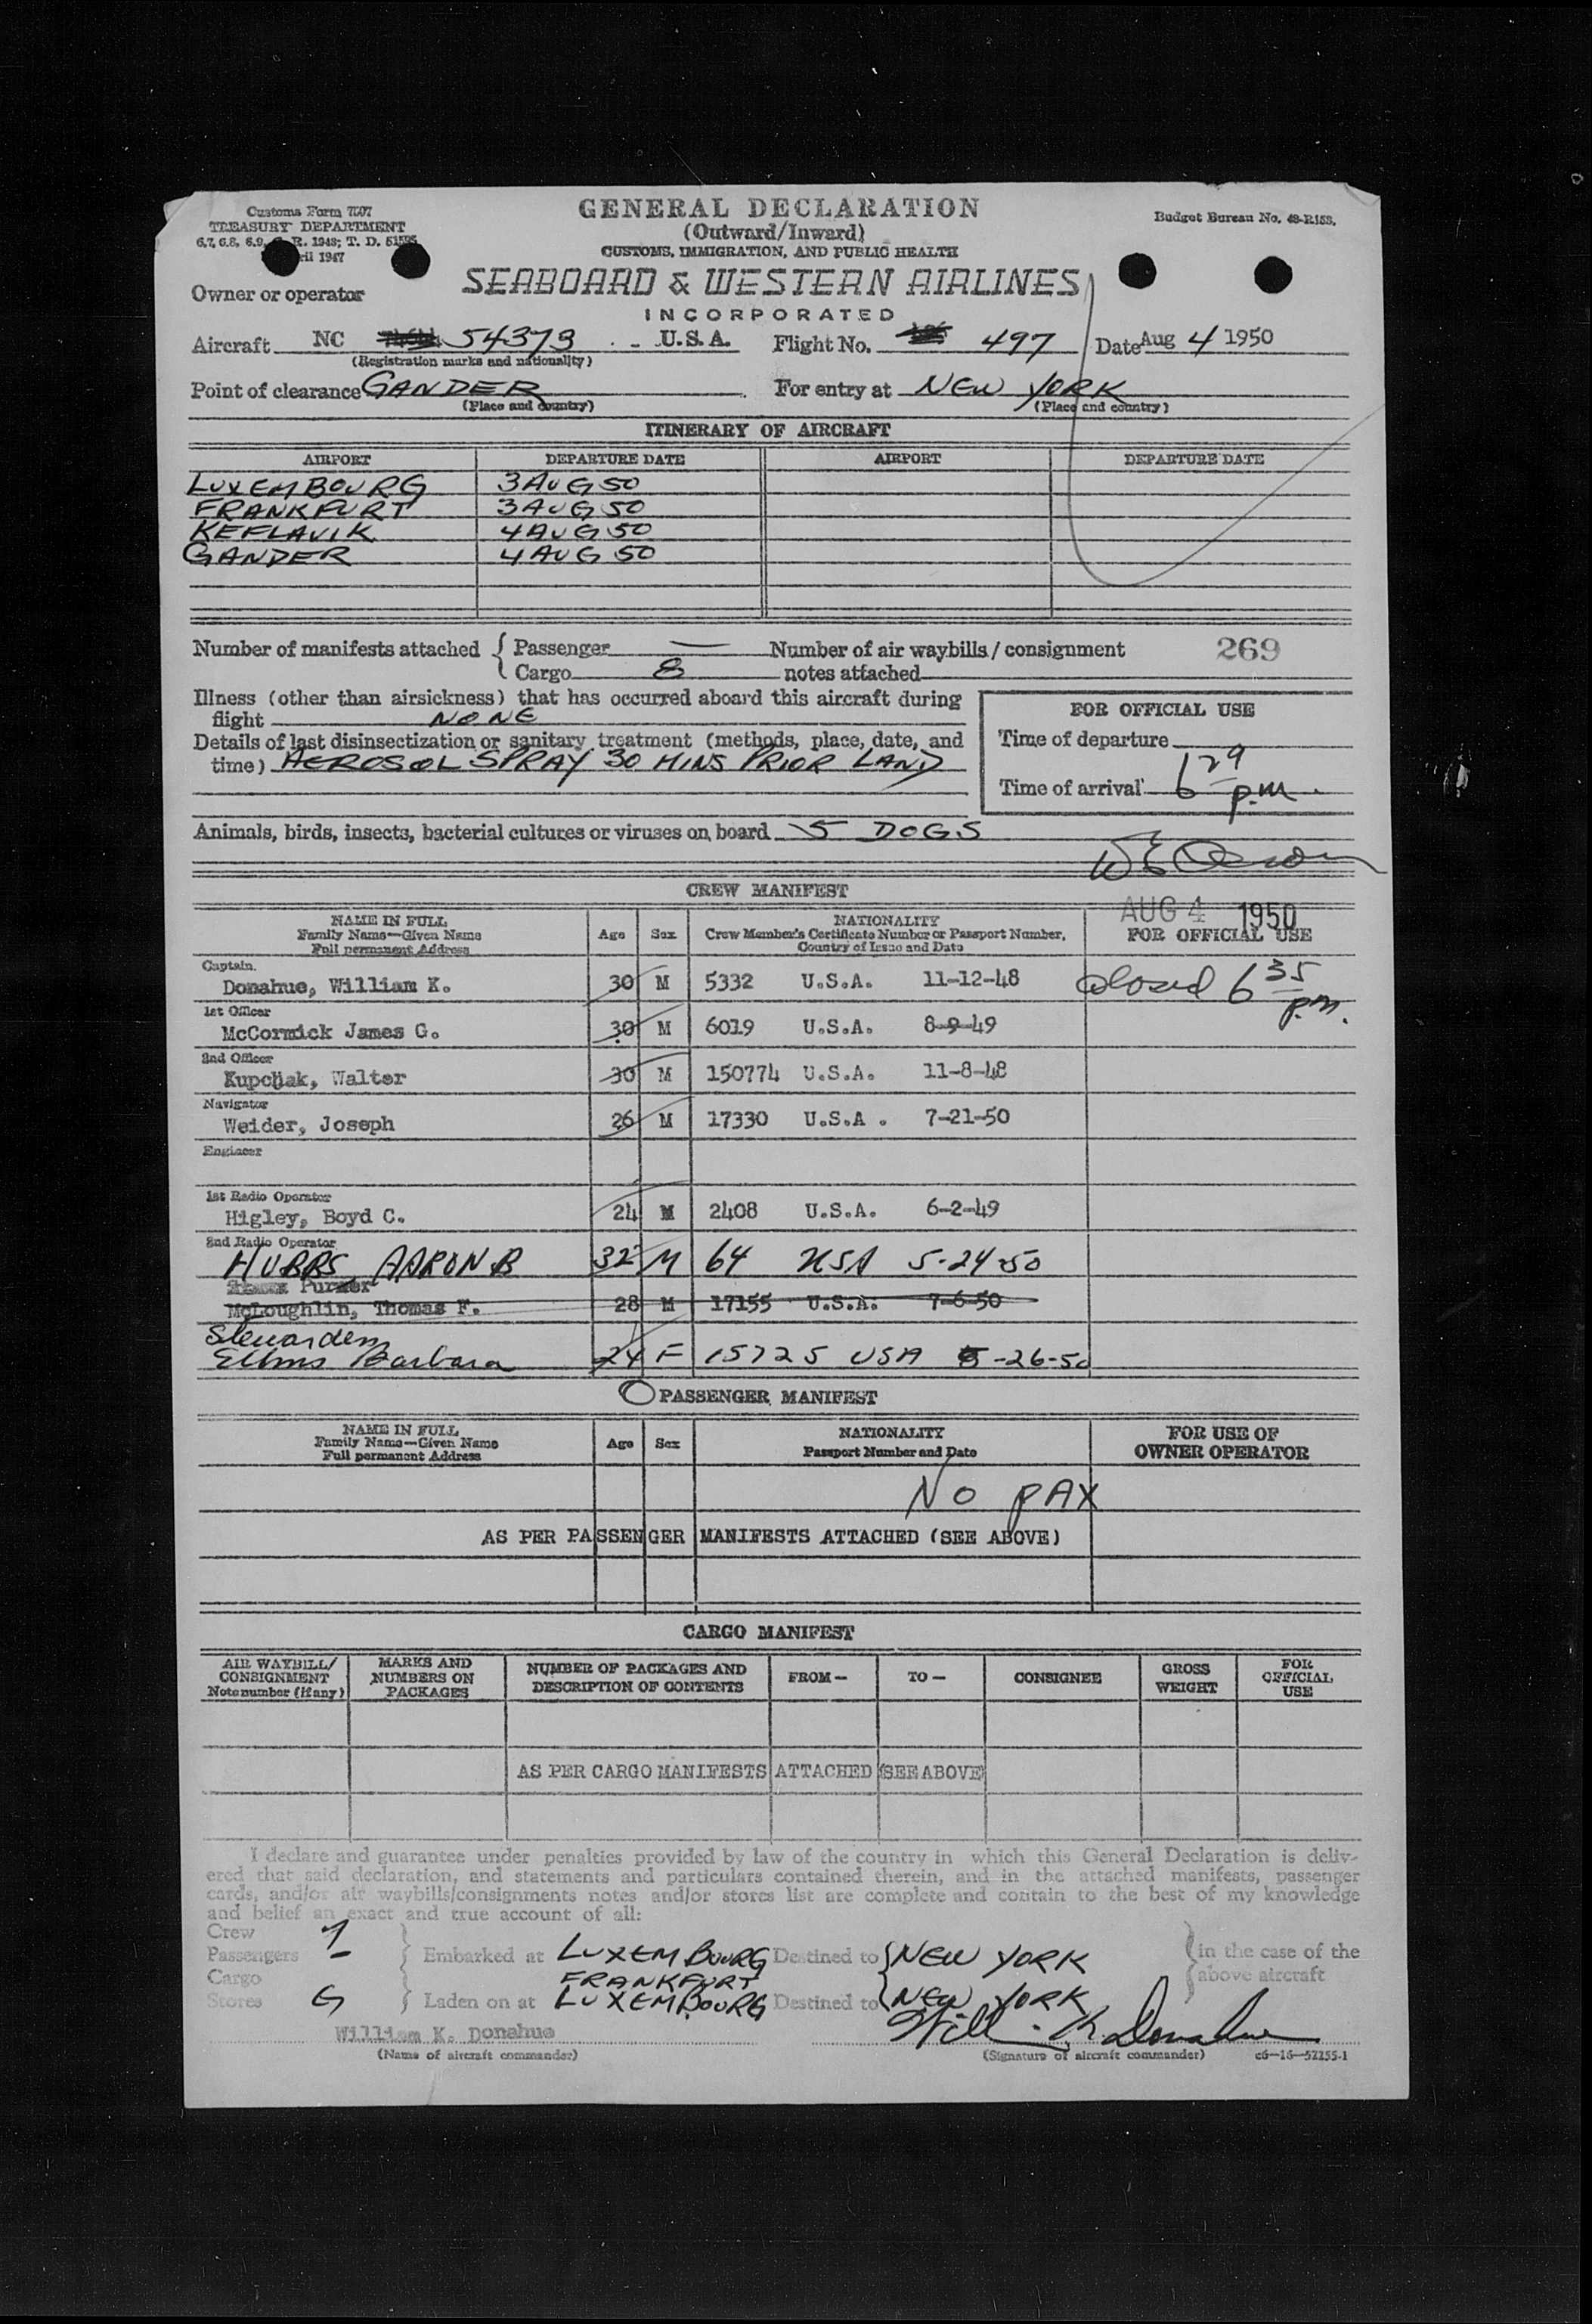 Customs Form 7507
TREASURY DEPARTMENT
6.7, 6.8, 6.9, C. R. 1943; T. D. 51595
April 1947
GENERAL DECLARATION
(Outward/Inward)
CUSTOMS, IMMIGRATION, AND PUBLIC HEALTH
Budget Bureau No. 48-R153.
Owner or operator SEABOARD & WESTERN AIRLINES
INCORPORATED
Aircraft NC 54373 U.S.A. Flight No. 497 Date Aug 4 1950
(Registration marks and nationality)
Point of clearance GANDER For entry at NEW YORK
(Place and country) (Place and country)
ITINERARY OF AIRCRAFT
AIRPORT DEPARTURE DATE AIRPORT DEPARTURE DATE
LUXEMBOURG 3 AUG 50
FRANKFURT 3 AUG 50
KEFLAVIK 4 AUG 50
GANDER 4 AUG 50
Number of manifests attached { Passenger — Number of air waybills / consignment 269
Cargo 8 notes attached
Illness (other than airsickness) that has occurred aboard this aircraft during
flight NONE
Details of last disinsectization or sanitary treatment (methods, place, date, and
time) AEROSOL SPRAY 30 MINS PRIOR LAND
FOR OFFICIAL USE
Time of departure
Time of arrival 6 29 p.m.
Animals, birds, insects, bacterial cultures or viruses on board 5 DOGS
CREW MANIFEST
AUG 4 1950
NAME IN FULL
Family Name—Given Name
Full permanent Address
Age Sex
NATIONALITY
Crew Member's Certificate Number or Passport Number,
Country of Issue and Date
FOR OFFICIAL USE
Captain
Donahue, William K. 30 M 5332 U.S.A. 11-12-48 closed 6 35 p.m.
1st Officer
McCormick James G. 30 M 6019 U.S.A. 8-9-49
2nd Officer
Kupchak, Walter 30 M 150774 U.S.A. 11-8-48
Navigator
Weider, Joseph 26 M 17330 U.S.A. 7-21-50
Engineer
1st Radio Operator
Higley, Boyd C. 24 M 2408 U.S.A. 6-2-49
2nd Radio Operator
HUBBS, AARON B 32 M 64 USA 5-24-50
Purser
McLoughlin, Thomas F. 28 M 17155 U.S.A. 7-6-50
Stewardess
Barbara 24 F 15725 USA 5-26-50
O PASSENGER MANIFEST
NAME IN FULL
Family Name—Given Name
Full permanent Address
Age Sex
NATIONALITY
Passport Number and Date
FOR USE OF
OWNER OPERATOR
NO PAX
AS PER PASSENGER MANIFESTS ATTACHED (SEE ABOVE)
CARGO MANIFEST
AIR WAYBILL/
CONSIGNMENT
Note number (if any)
MARKS AND
NUMBERS ON
PACKAGES
NUMBER OF PACKAGES AND
DESCRIPTION OF CONTENTS
FROM— TO— CONSIGNEE
GROSS
WEIGHT
FOR
OFFICIAL
USE
AS PER CARGO MANIFESTS ATTACHED (SEE ABOVE)
I declare and guarantee under penalties provided by law of the country in which this General Declaration is deliv-
ered that said declaration, and statements and particulars contained therein, and in the attached manifests, passenger
cards, and/or air waybills/consignments notes and/or stores list are complete and contain to the best of my knowledge
and belief an exact and true account of all:
Crew 7
Passengers — } Embarked at LUXEMBOURG Destined to { NEW YORK } in the case of the
Cargo FRANKFURT above aircraft
Stores G } Laden on at LUXEMBOURG Destined to NEW YORK
William K. Donahue Will. K. Donahue
(Name of aircraft commander) (Signature of aircraft commander) c6—16—52255-1